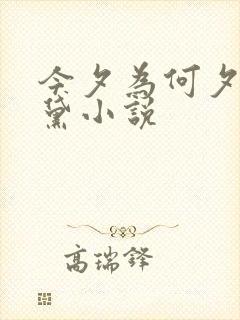 今夕為何夕
黛小說
高瑞鋒